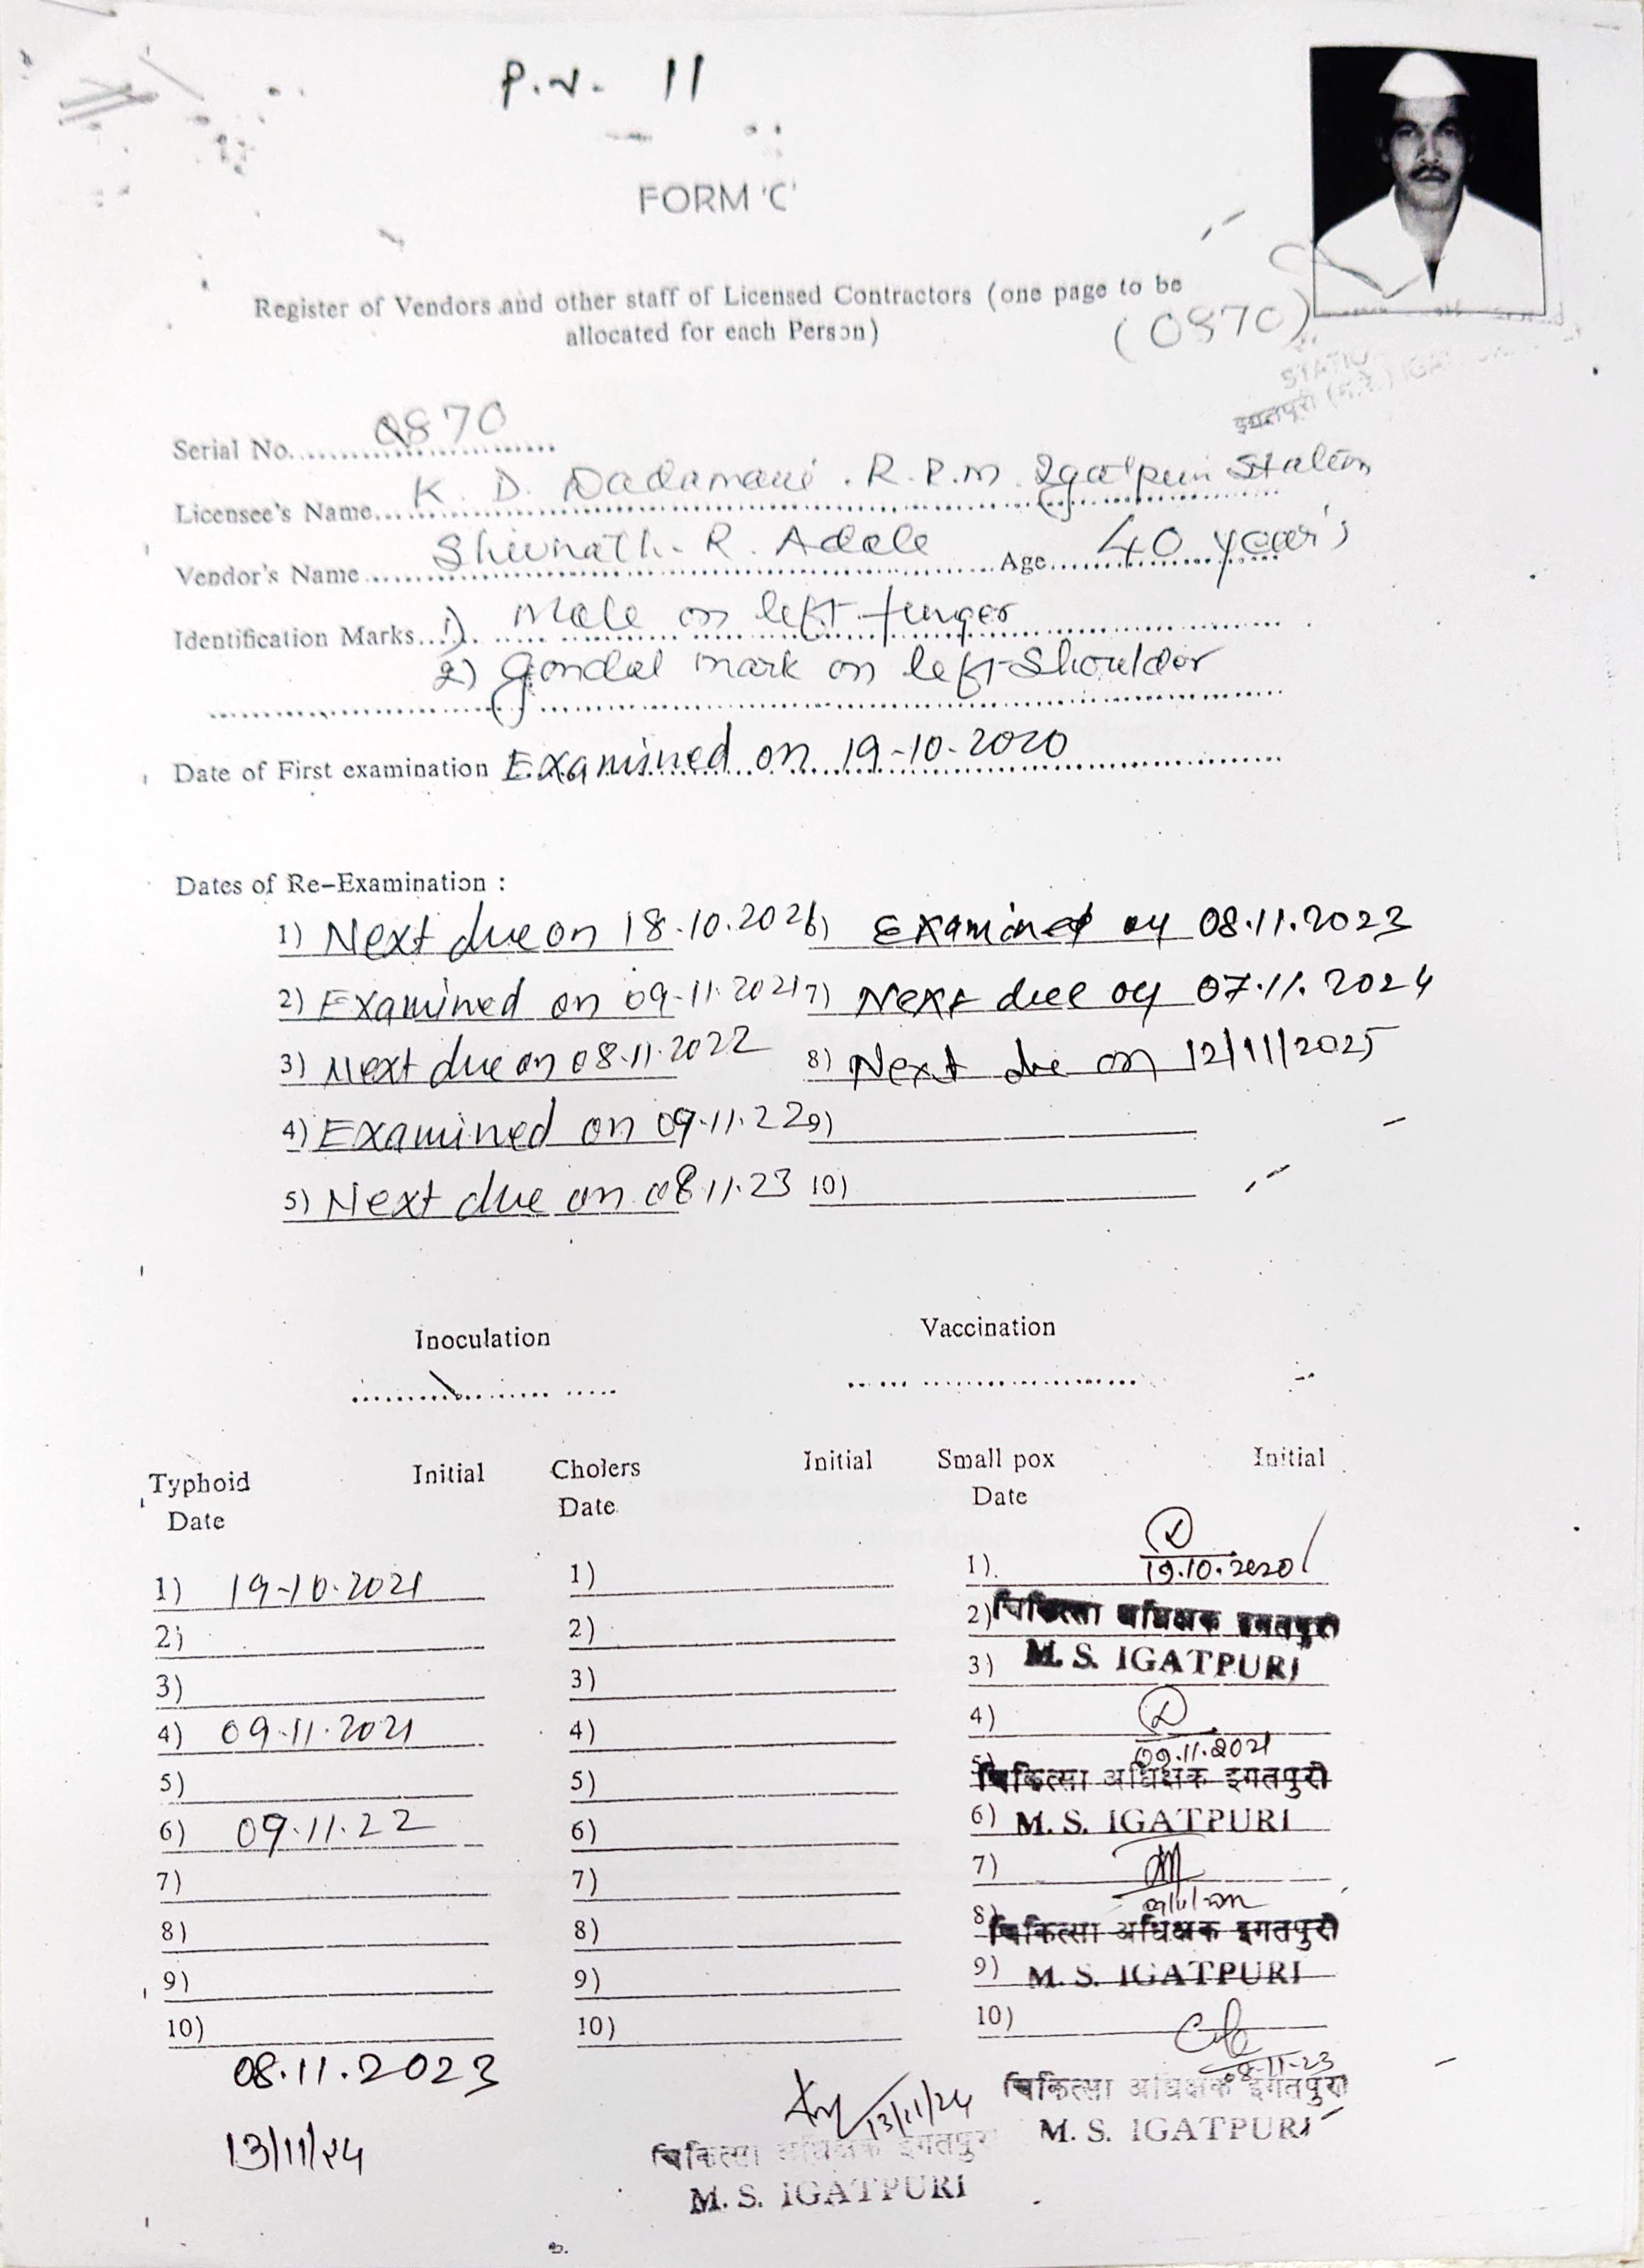 P.V. 11
FORM 'C'
Register of Vendors and other staff of Licensed Contractors (one page to be
allocated for each Person)
(0870)
STATIO
इगतपुरी (म.रे.) IGA
Serial No. 0870
Licensee's Name K. D. Dadamani . R.R.M. Igatpuri Station
Vendor's Name Shivnath. R. Adole Age 40 year's
Identification Marks 1) Mole on left finger
2) Gondal mark on left Shoulder
Date of First examination Examined on 19-10-2020
Dates of Re-Examination :
1) Next due on 18.10.2021 6) Examined on 08.11.2023
2) Examined on 09-11-2021 7) Next due on 07.11.2024
3) Next due on 08.11.2022 8) Next due on 12/11/2025
4) Examined on 09.11.22 9)
5) Next due on 08.11.23 10)
Inoculation Vaccination
Typhoid Initial Cholers Initial Small pox Initial
Date Date Date
1) 19-10-2021 1) 1) 19.10.2020
2) 2) 2) चिकित्सा अधिक्षक इगतपुरी
3) 3) 3) M. S. IGATPURI
4) 09.11.2021 4) 4)
09.11.2021
5) 5) 5) चिकित्सा अधिक्षक इगतपुरी
6) 09.11.22 6) 6) M. S. IGATPURI
7) 7) 7)
8) 8) 8) चिकित्सा अधिक्षक इगतपुरी
9) 9) 9) M. S. IGATPURI
10) 10) 10)
08.11.2023 08-11-23
चिकित्सा अधिक्षक इगतपुरी
13/11/24 M. S. IGATPURI
13/11/24
चिकित्सा अधिक्षक इगतपुरी
M. S. IGATPURI